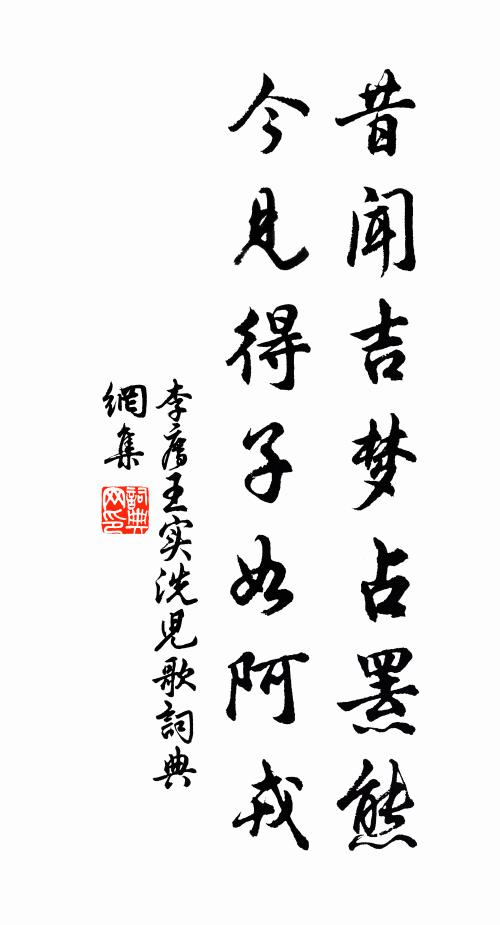 昔闻吉梦占罴熊
今见得子如阿戎
李廌王实洗兒歌詞典
網集
詞典
网印